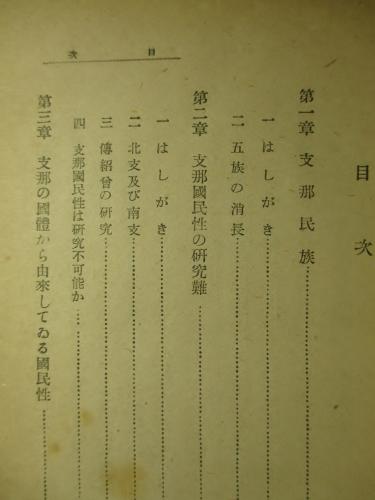 目次
目次
第一章 支那民族
一 はしがき
二 五族の消長
第二章 支那國民性の硏究難
一 はしがき
二 北支及び南支
三 傳紹曾の硏究
四 支那國民性は硏究不可能か
第三章 支那の國體から由來してゐる國民性